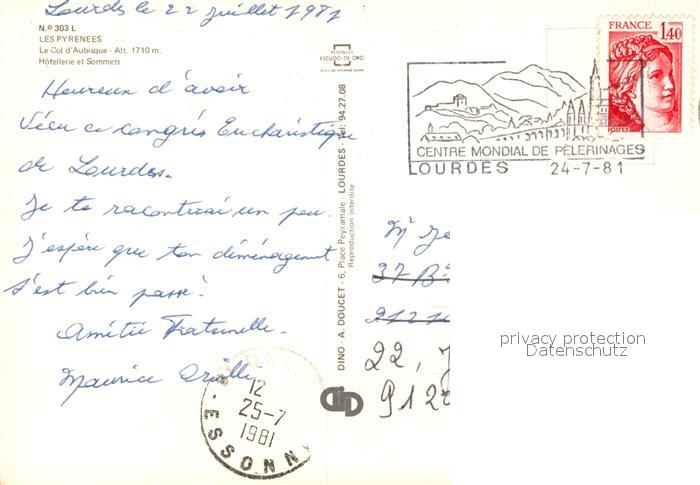 Lourdes le 22 juillet 1981
N.º 303 L
LES PYRENEES
Le Col d'Aubisque - Alt. 1710 m.
Hôtellerie et Sommets
POSTALES
ESCUDO DE ORO
Heureux d'avoir
Vécu ce congrès Eucharistique
de Lourdes.
Je te raconterai un peu.
J'espère que ton déménagement
s'est bien passé.
Amitié Fraternelle.
Maurice
DINO - A. DOUCET - 6, Place Peyramale - LOURDES - Tel: 94.27.08
Reproduction interdite
FRANCE
1,40
POSTES
CENTRE MONDIAL DE PÈLERINAGES
LOURDES 24-7-81
Mr Je
37 B
9121
22, J
912
12
25-7
1981
ESSONN
privacy protection
Datenschutz